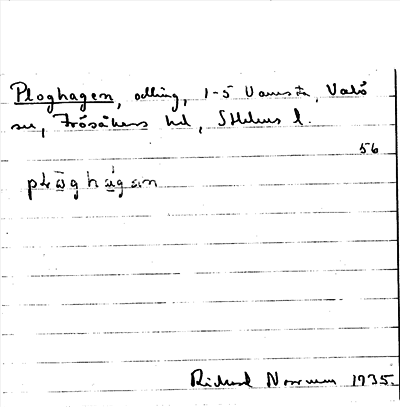 Ploghagen, odling, 1-5 Vamsta, Valö
sn, Frösåkers hd, Sthlms l.
56
plω̄ghágan
Rickard Norrman 1935.